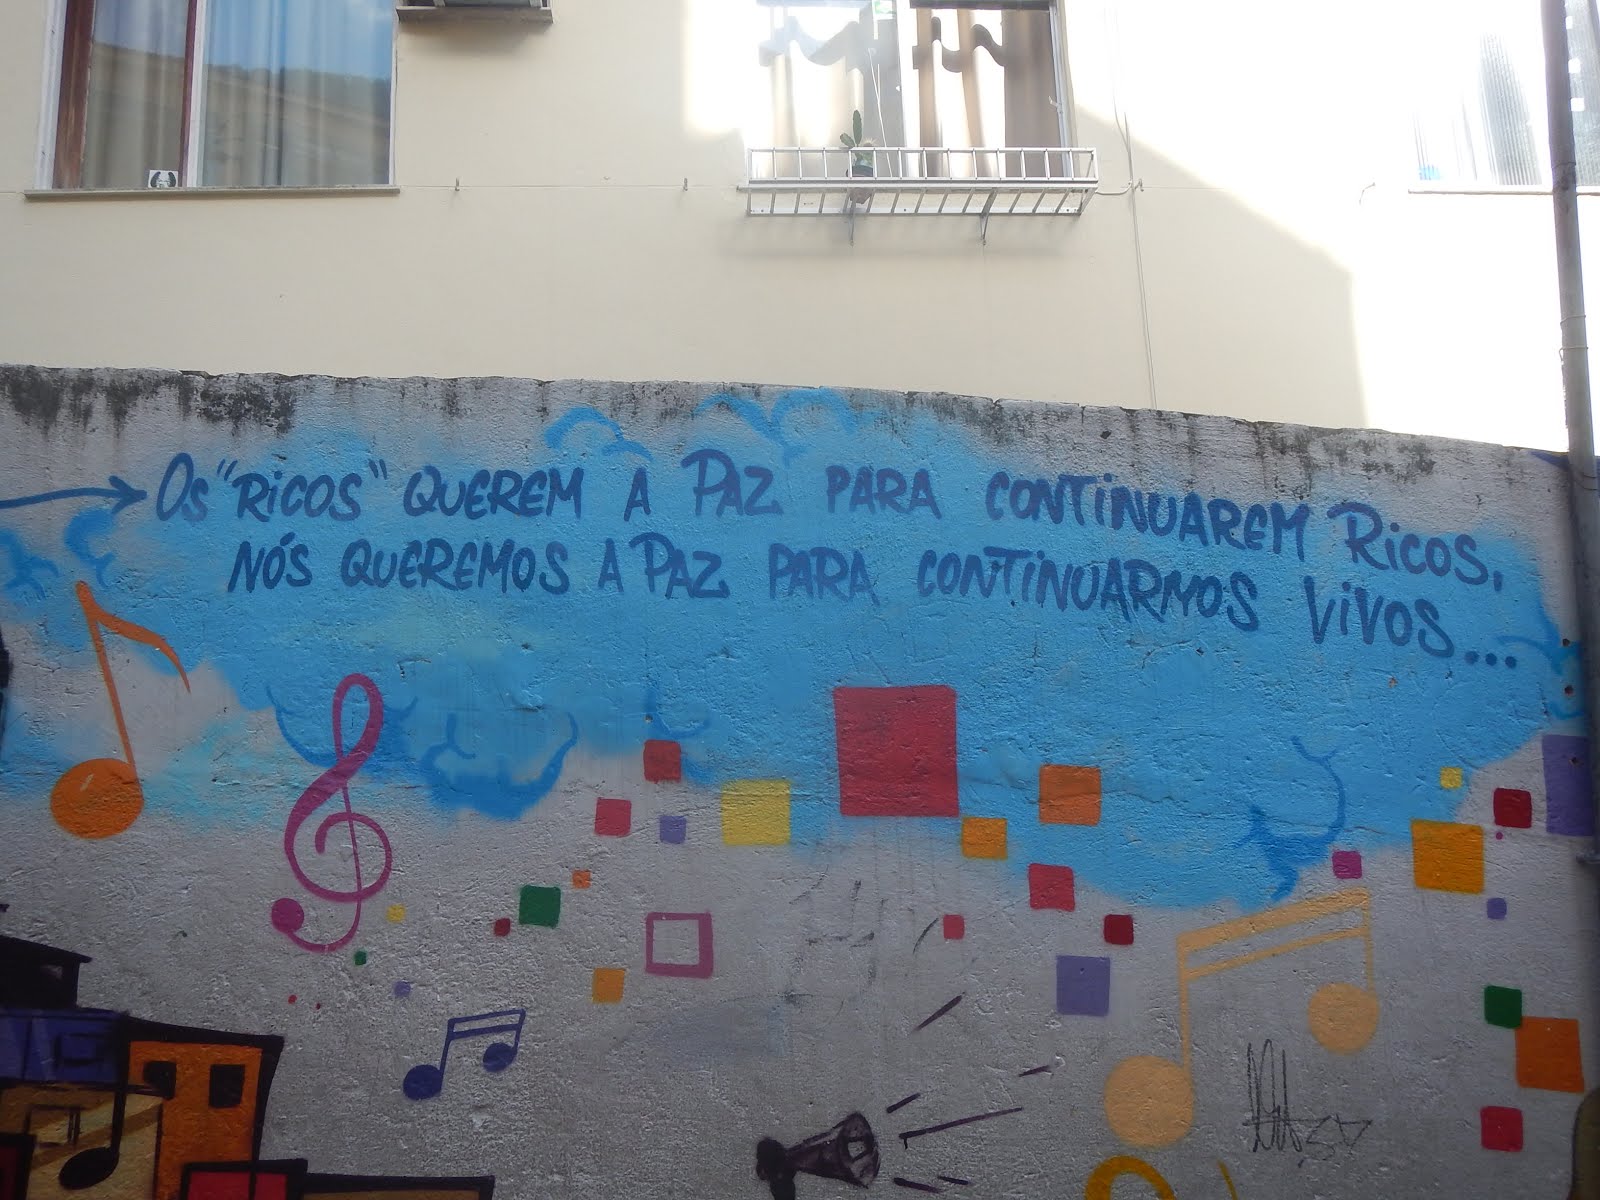 Os "Ricos" querem a Paz para continuarem Ricos,
nós queremos a Paz para continuarmos vivos...